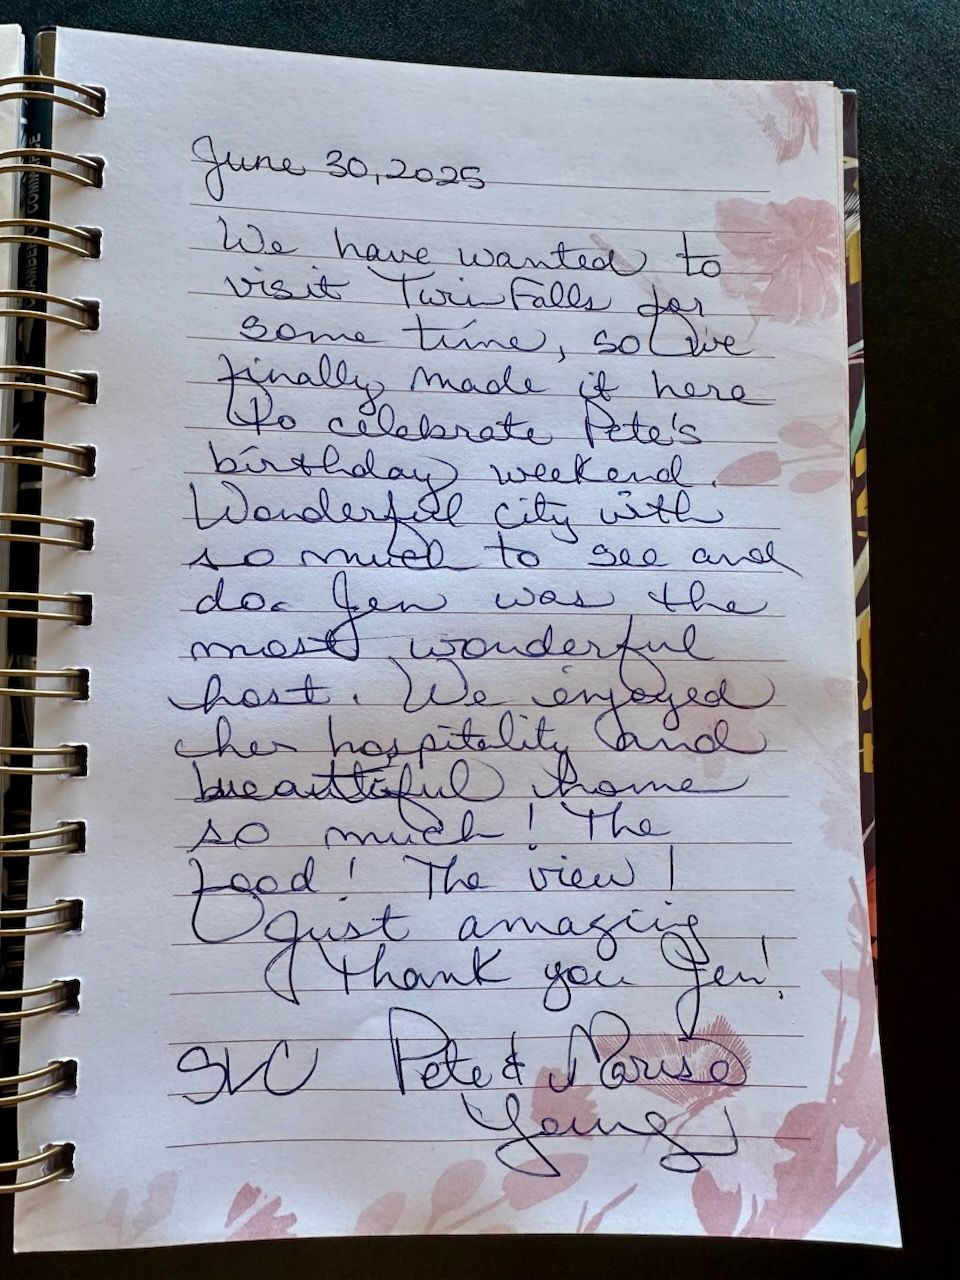 June 30, 2025
We have wanted to
visit Twin Falls for
some time, so we
finally made it here
to celebrate Pete's
birthday weekend.
Wonderful city with
so much to see and
do. Jen was the
most wonderful
host. We enjoyed
her hospitality and
beautiful home
so much! The
food! The view!
Just amazing
Thank you Jen!
SLC Pete & Marisa
Young